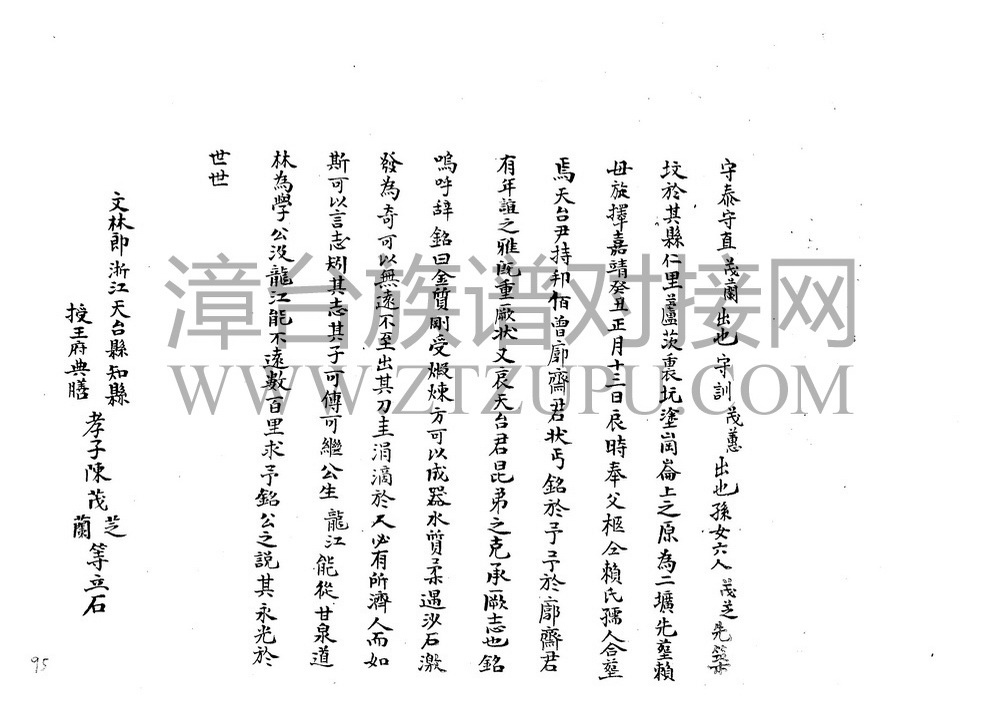 守泰守直茂蘭出也守訓茂蕙出也孫女六人茂芝先築
坟於其縣仁里蘆茨裏坑塗崗崙上之原為二壙先塟賴
母旋擇嘉靖癸丑正月十三日辰時奉父柩仝賴氏孺人合塟
焉天台尹持邦伯曾廓齋君状丐銘於予予於廓齋君
有年誼之雅既重厥状又哀天台君昆弟之克承厥志也銘
嗚呼辞銘曰金質剛受煅煉方可以成器水質柔遇沙石激
發為奇可以無遠不至出其刀圭涓滴於人必有所濟人而如
斯可以言志矧其志其子可傳可繼公生龍江能從甘泉道
林為學公没龍江能不遠數百里求予銘公之説其永光於
世世
文林郎浙江天台縣知縣
授王府典膳
孝子陳茂芝蘭等立石
95
漳台族谱对接网
WWW.ZTZUPU.COM